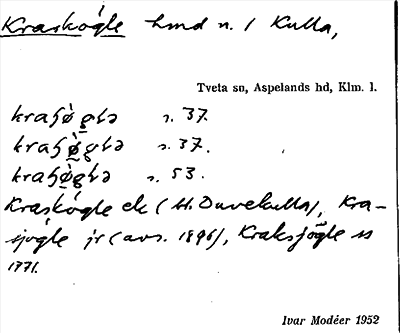 Kraskögle hmd n. / Kulla,
Tveta sn, Aspelands hd, Klm. l.
s. 37.
s. 37.
s. 53.
Kraskögle ek (St. Duvekulla), Kra-
sjögle jr (avs. 1896), Kraksjögle ss
1771.
Ivar Modéer 1952